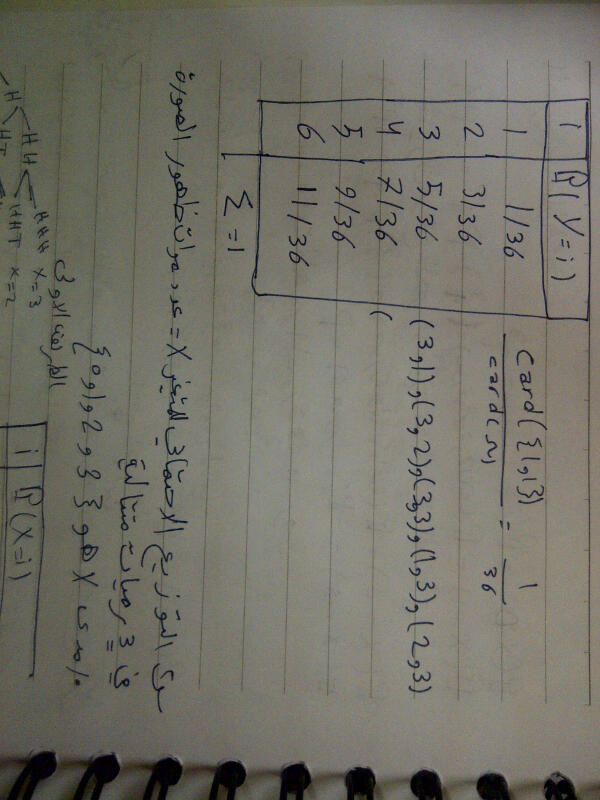 i | P(Y=i)
1 | 1/36
2 | 3/36
3 | 5/36
4 | 7/36
5 | 9/36
6 | 11/36
Σ = 1
card({1,1})
card(Ω) = 1
36
(3,1),(3,2),(3,3),(1,3),(2,3)
(
التوزيع الاحتمالي للمتغير X = عدد مرات ظهور الصورة
في 3 رميات متتالية
مدى X هو {0,1,2,3}
H HH HHH x=3
HT HHT x=2
i | P(X=i)